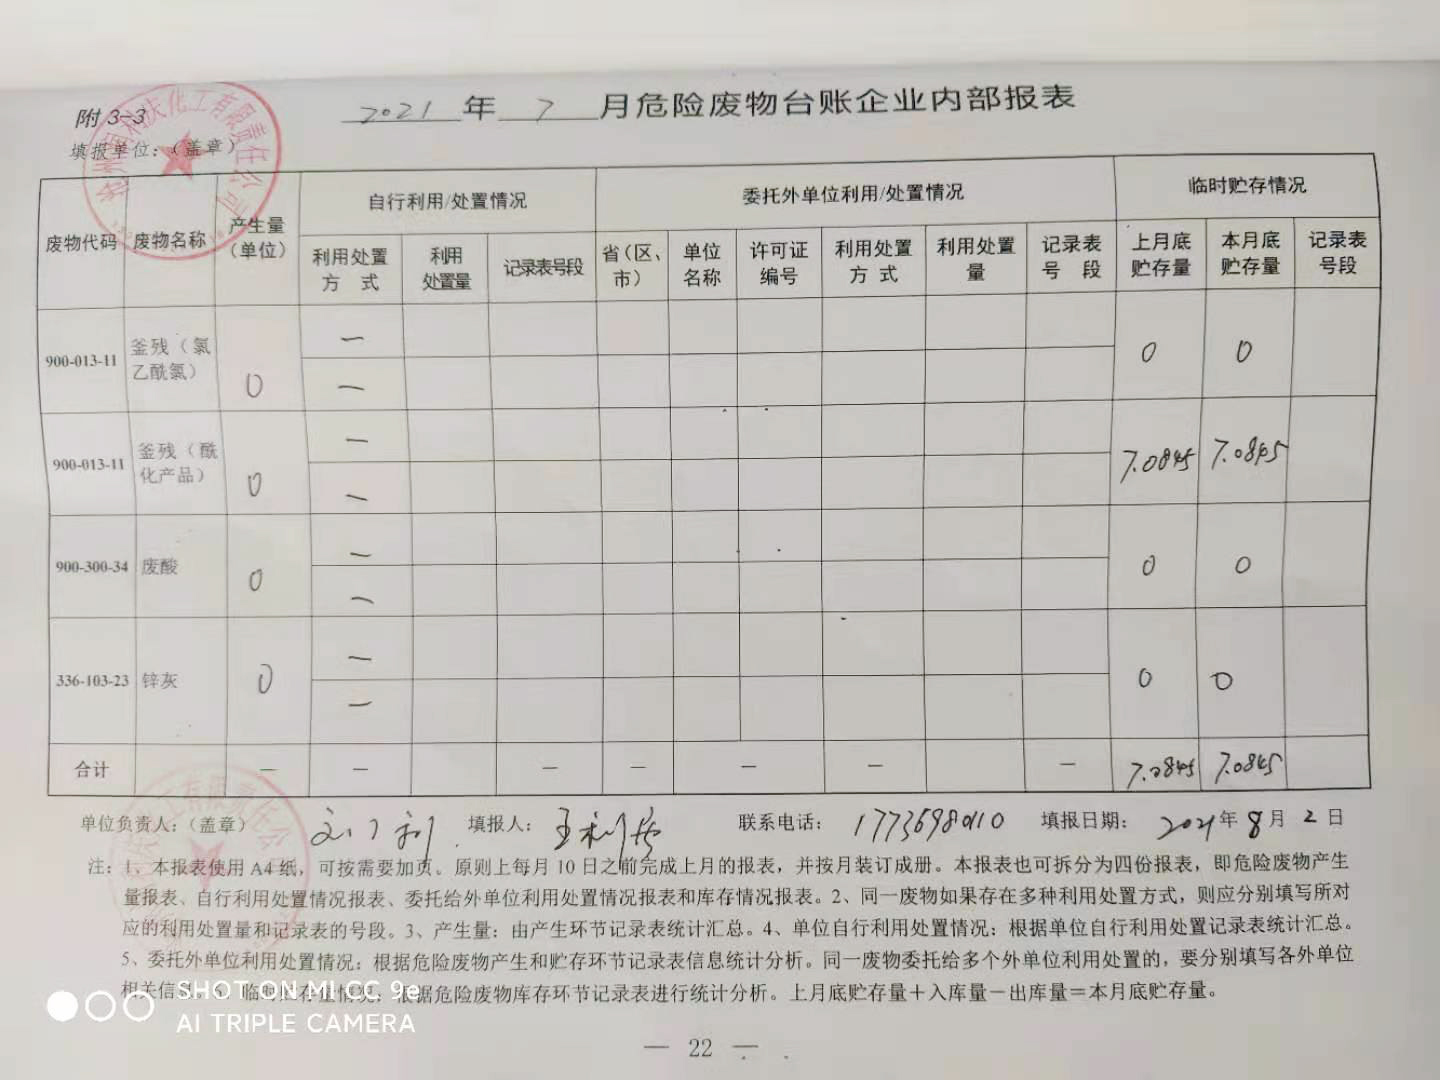 附 3-3
2021 年 7 月危险废物台账企业内部报表
填报单位：（盖章）
有限责任公司
废物代码 废物名称 产生量（单位） 自行利用/处置情况 委托外单位利用/处置情况 临时贮存情况
利用处置方 式 利用处置量 记录表号段 省（区、市） 单位名称 许可证编号 利用处置方 式 利用处置量 记录表号 段 上月底贮存量 本月底贮存量 记录表号段
900-013-11 釜残（氯乙酰氯） 0 — — 0 0
900-013-11 釜残（酰化产品） 0 — — 7.0845 7.0845
900-300-34 废酸 0 — — 0 0
336-103-23 锌灰 0 — — 0 0
合计 — — — — — — — 7.0845 7.0845
单位负责人：（盖章） 填报人： 联系电话： 填报日期： 2021 年 8 月 2 日
注：1、本报表使用 A4 纸，可按需要加页。原则上每月 10 日之前完成上月的报表，并按月装订成册。本报表也可拆分为四份报表，即危险废物产生
量报表、自行利用处置情况报表、委托给外单位利用处置情况报表和库存情况报表。2、同一废物如果存在多种利用处置方式，则应分别填写所对
应的利用处置量和记录表的号段。3、产生量：由产生环节记录表统计汇总。4、单位自行利用处置情况：根据单位自行利用处置记录表统计汇总。
5、委托外单位利用处置情况：根据危险废物产生和贮存环节记录表信息统计分析。同一废物委托给多个外单位利用处置的，要分别填写各外单位
相关信 临时 存量情况：根据危险废物库存环节记录表进行统计分析。上月底贮存量＋入库量－出库量＝本月底贮存量。
SHOT ON MI CC 9e
AI TRIPLE CAMERA
— 22 —